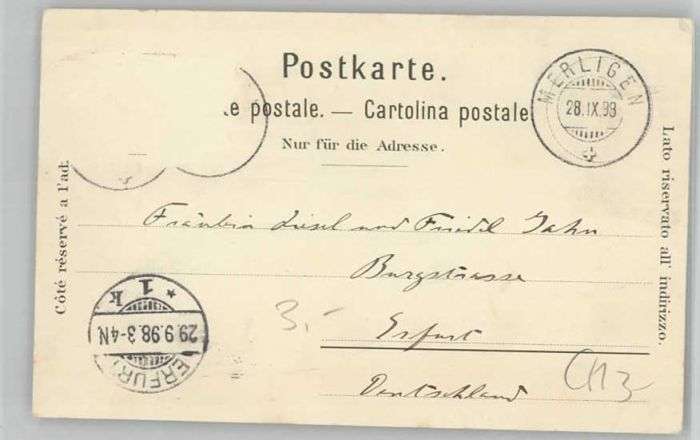 Postkarte.
e postale. — Cartolina postale
Nur für die Adresse.
MERLIGEN
28.IX.98
Côté réservé a l'ad
Lato riservato all' indirizzo.
Fräulein Liesel und Friedel Jahn
Burgstrasse
Erfurt
Deutschland
3.-
CH3
ERFUR
29.9.98.3-4N
* 1 k